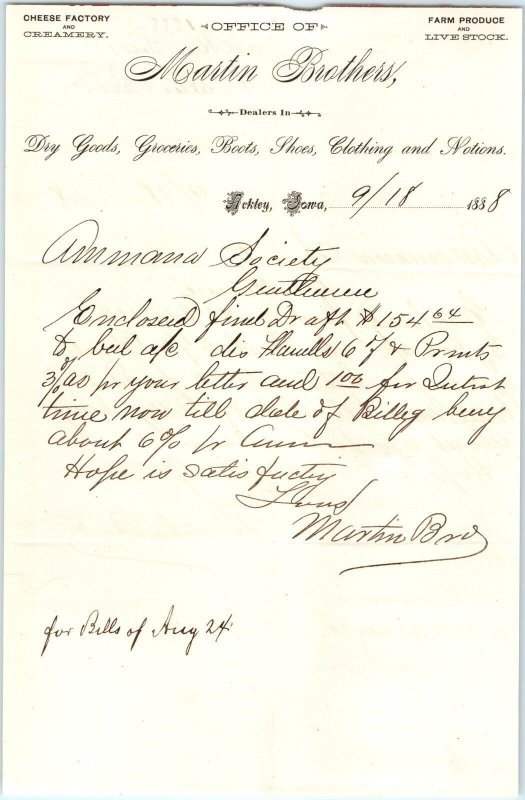 CHEESE FACTORY
AND
CREAMERY.
OFFICE OF
FARM PRODUCE
AND
LIVE STOCK.
Martin Brothers,
Dealers In
Dry Goods, Groceries, Boots, Shoes, Clothing and Notions.
Ackley, Iowa, 9/18 1888
Ammana Society
Gentlemen
Enclosed find Draft $154 64
bal a/c dis Flanells 6 % & Prints
3% as pr your letter and 1 00 for Intrst
time now till date of Billeg being
about 6% pr Annum
Hope is satisfacty
Yours
Martin Bro
for Bills of Aug 24